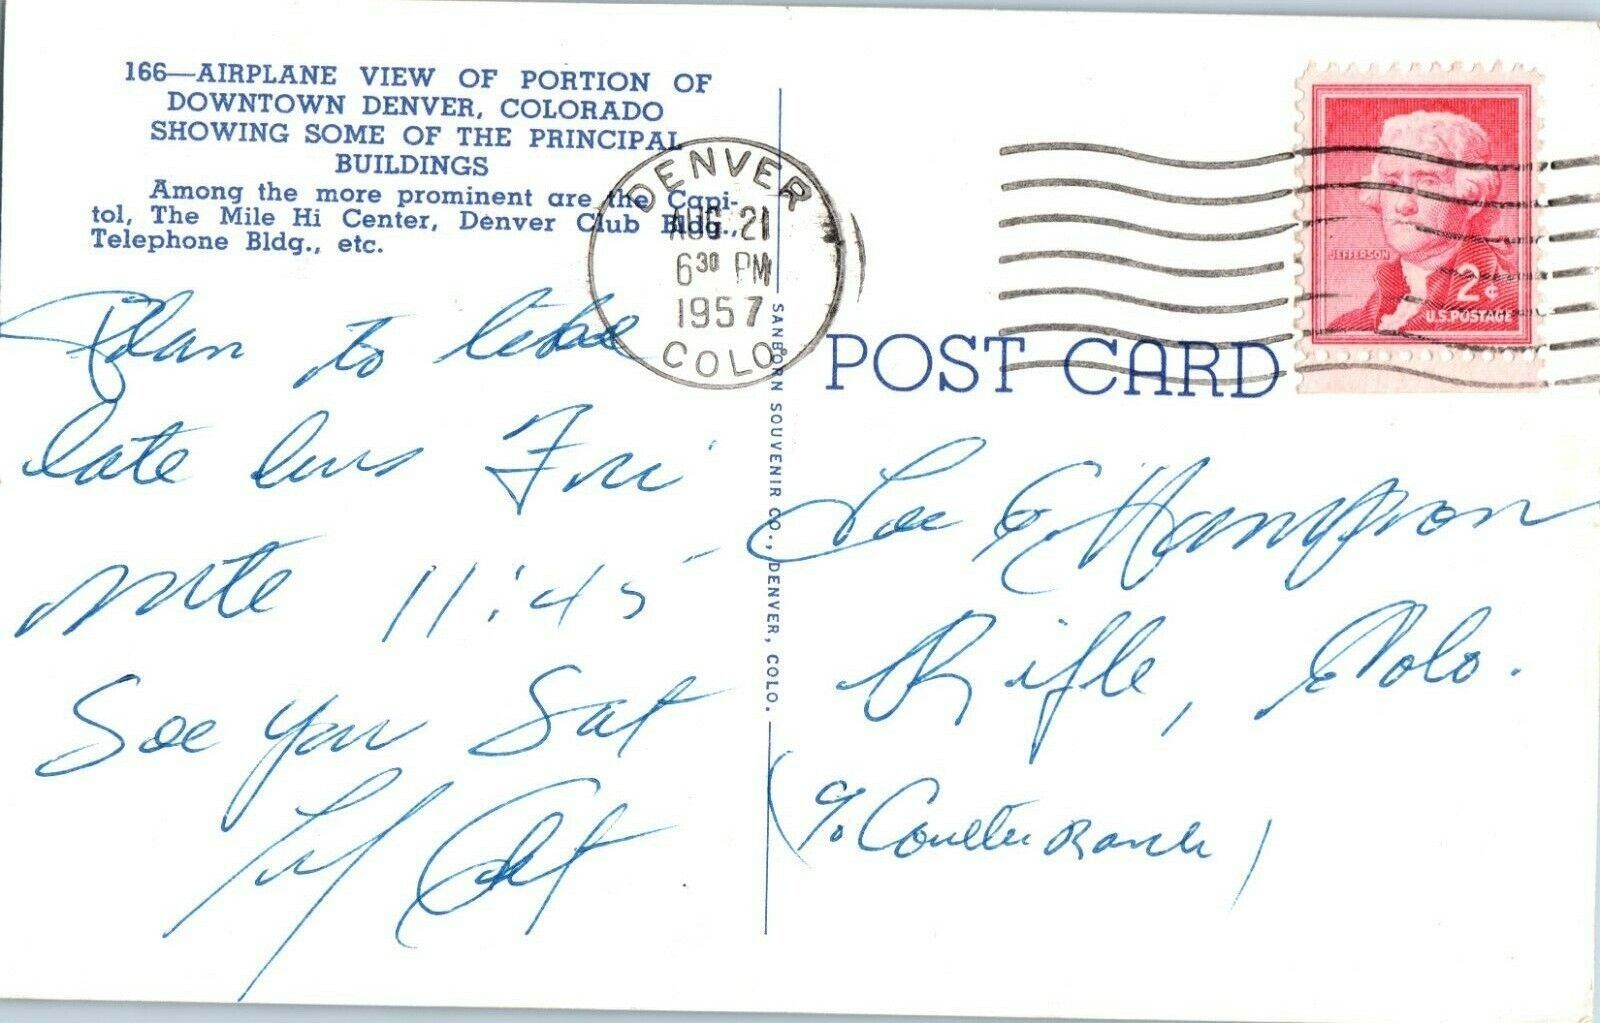 166—AIRPLANE VIEW OF PORTION OF
DOWNTOWN DENVER, COLORADO
SHOWING SOME OF THE PRINCIPAL
BUILDINGS
Among the more prominent are the Capi-
tol, The Mile Hi Center, Denver Club Bldg.,
Telephone Bldg., etc.
Plan to take
late bus Fri
nite 11:45
See you Sat
DENVER
AUG 21
6 30 PM
1957
COLO.
SANBORN SOUVENIR CO., DENVER, COLO.
POST CARD
JEFFERSON
2¢
U.S. POSTAGE
Lee E Hampson
Rifle, Colo.
(% Coulter Ranch)